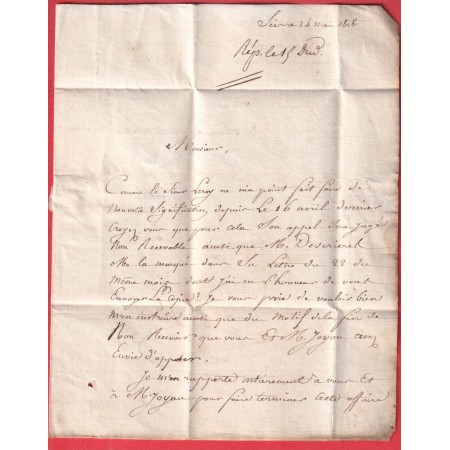 14 mai 1818.
Rép. le 15 Dud.
Monsieur,
Comme le Sieur Leroy ne m'a point fait faire de
nouvelle Signification depuis Le 16 avril dernier
Croyez vous que pour cela Son appel Sera jugé
Non Recevable ainsi que M. Descrieret
Me la marqué dans Sa Lettre du 22 du
même mois dont j'ai eu L'honneur de vous
Envoyer La Copie? Je vous prie de vouloir bien
m'en instruire ainsi que du Motif de la fin de
Non Recevoir que vous Et M. Joyau avez
Envie d'opposer.
Je m'en rapporte entièrement à vous Et
à M. Joyau pour faire terminer Cette affaire